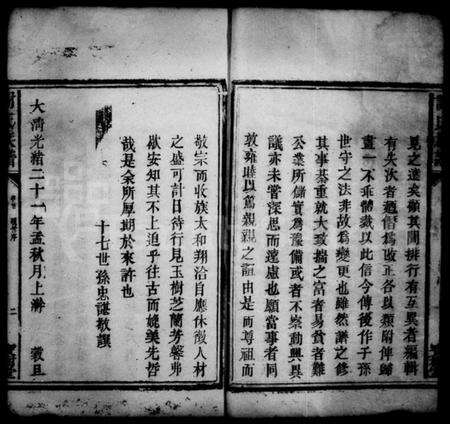 見之遠矣顧其間排行有互異者編輯
有失次者遜偕爲改正各以類附俾歸
畫一不乖體裁以此信今傳後作子孫
世守之法非故爲變更也雖然譜之修
其事綦重就大致揣之富者易貧者難
公業所儲實爲豫備或者不察動興異
議亦未嘗深思而遠慮也願當事者同
敦雍睦以篤親親之誼由是而尊祖而
敬宗而收族太和翔洽自應休徵人材
之盛可計日待行見玉樹芝蘭芳馨弗
歇安知其不上追乎往古而媲美先哲
哉是余所厚期於來許也
十七世孫忠謎敬譔
大清光緒二十一年孟秋月上澣 穀旦
二